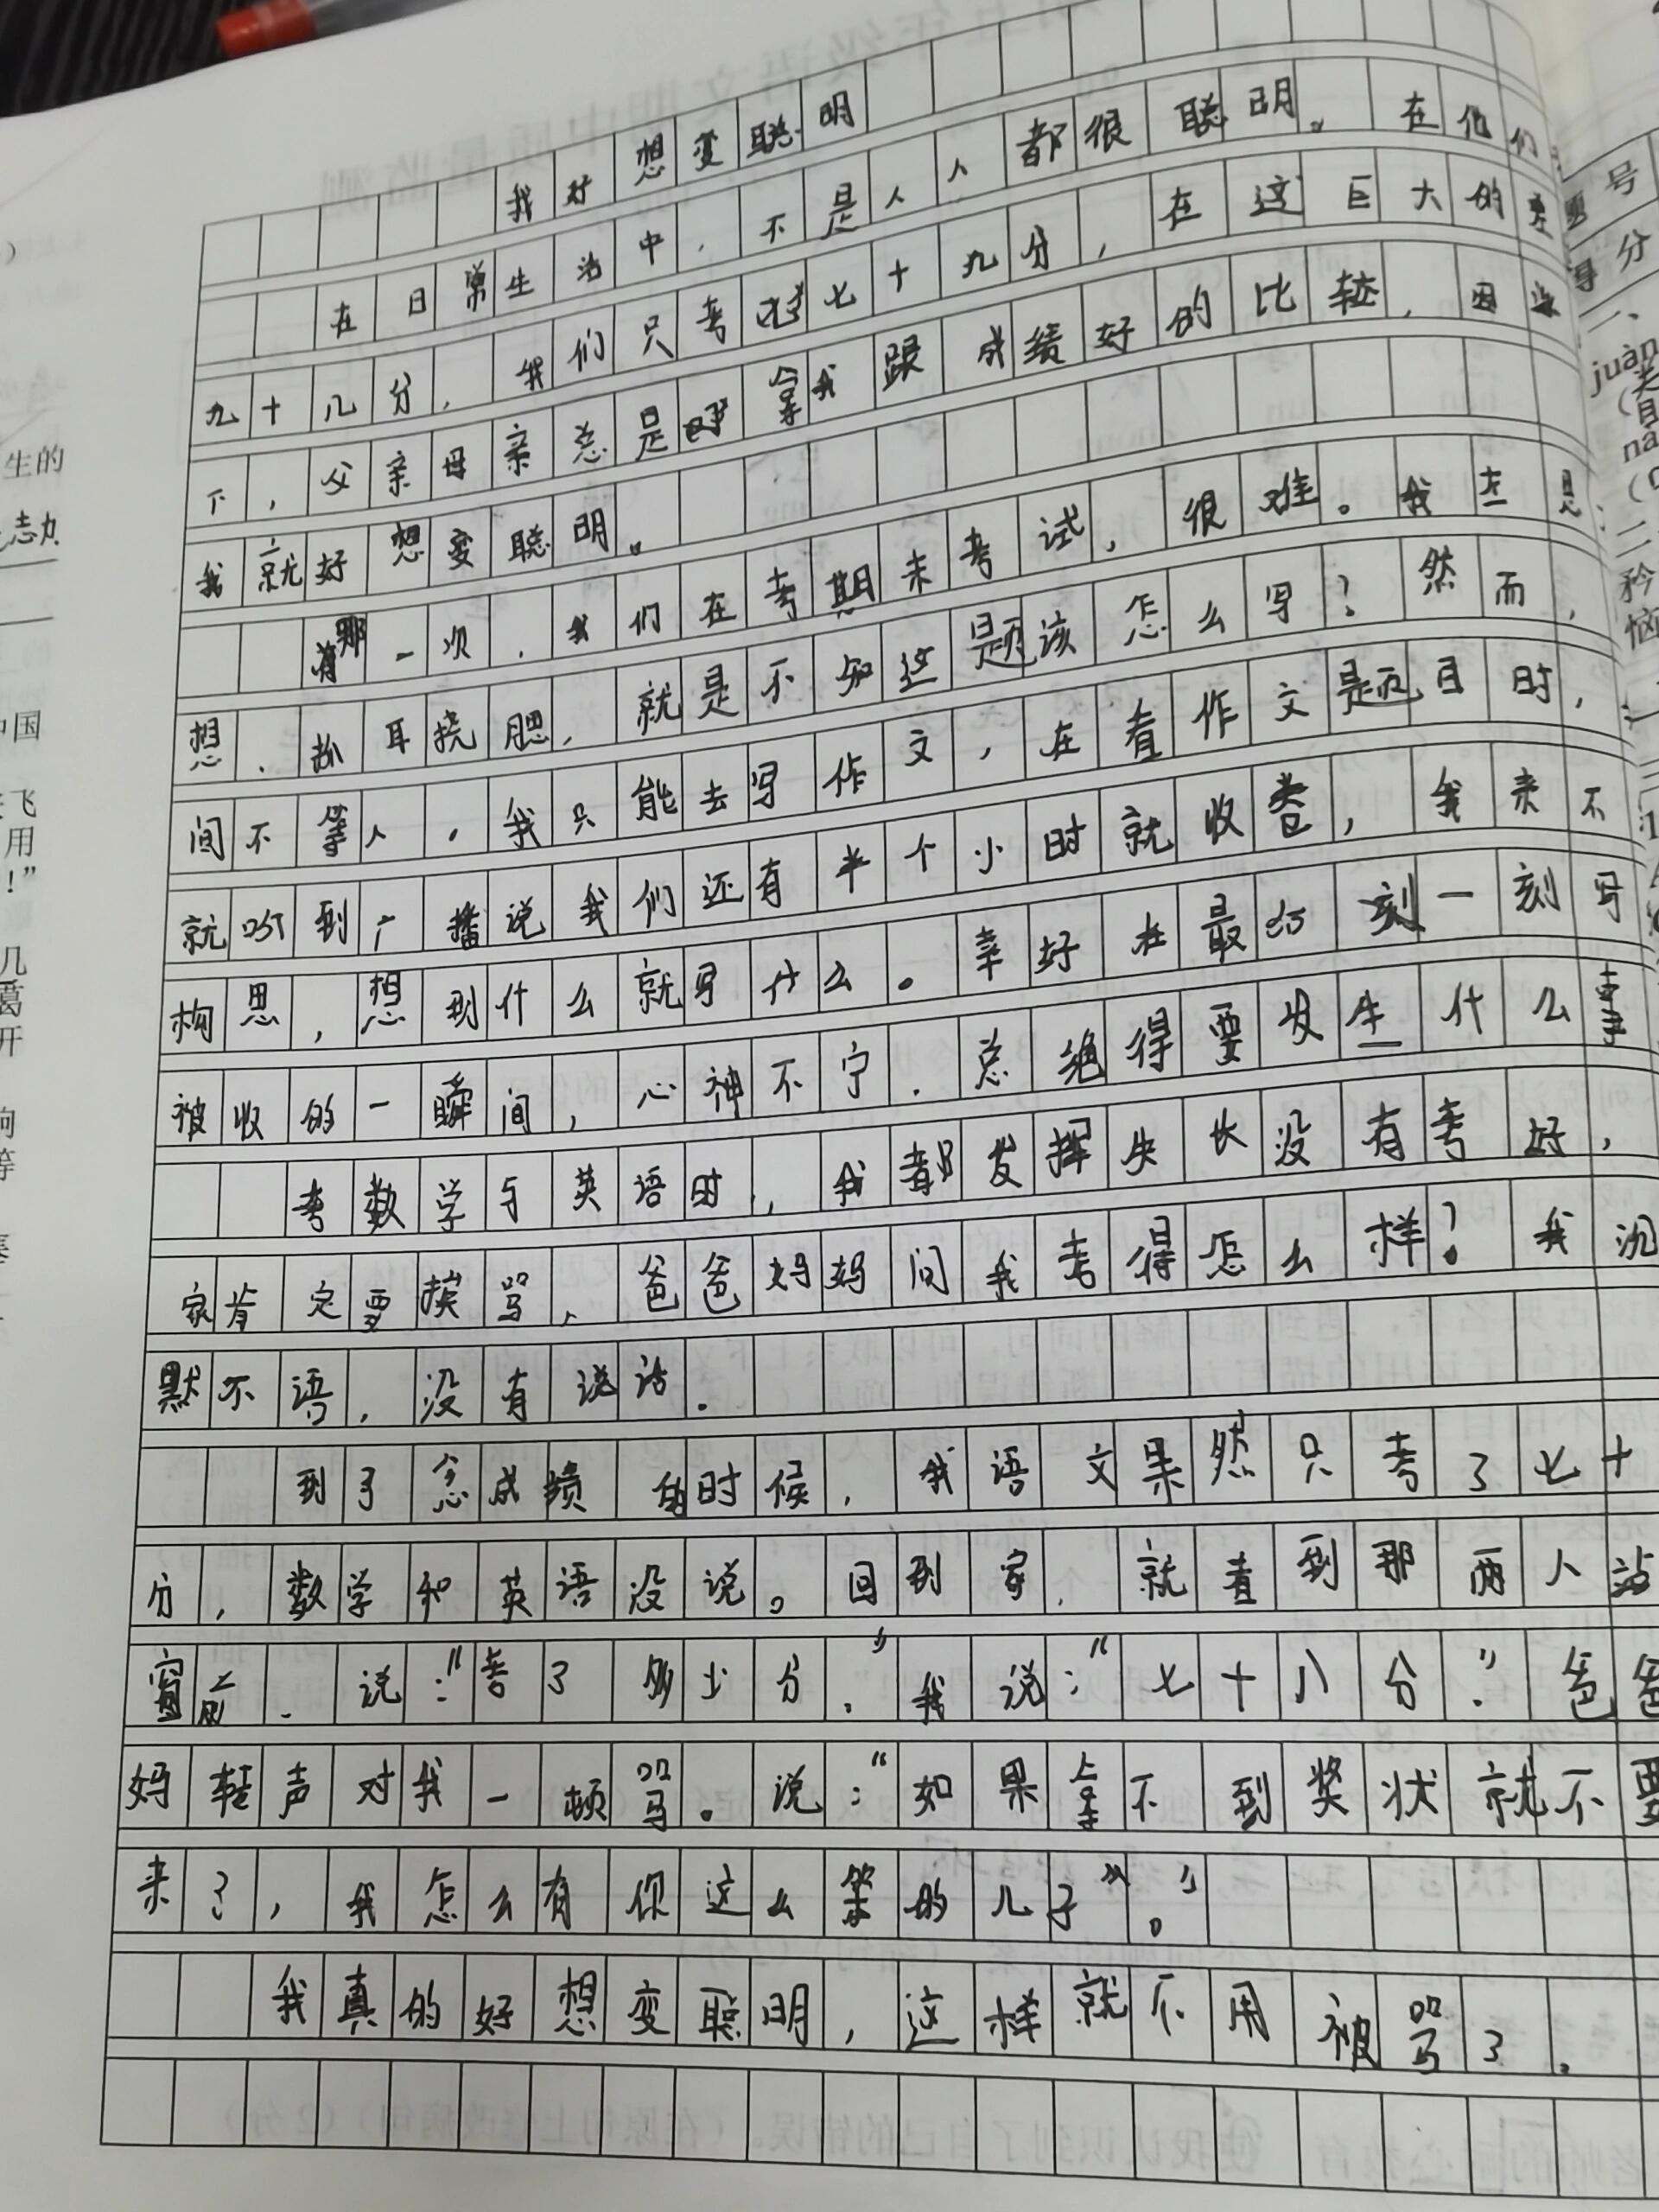 我好想变聪明
在日常生活中，不是人人都很聪明。在他们
九十几分，我们只考七十九分，在这巨大的
下，父亲母亲总是拿我跟成绩好的比较，因此
我就好想变聪明。
那一次，我们在考期末考试，很难。我左思
想，抓耳挠腮，就是不知这题该怎么写？然而，
间不等人，我只能去写作文，在看作文题目时，
就听到广播说我们还有半个小时就收卷，我来不
构思，想到什么就写什么。幸好在最后刻一刻写
被收的一瞬间，心神不宁，总绝得要发生什么事
考数学与英语时，我都发挥失长没有考好，
家肯定要挨骂，爸爸妈妈问我考得怎么样？我沉
默不语，没有说话。
到了念成绩的时候，我语文果然只考了七十
分，数学和英语没说。回到家，就看到那两人站
窗前，说：“考了多少分，”我说：“七十八分。”爸爸
妈轻声对我一顿骂。说：“如果拿不到奖状就不要
来了，我怎么有你这么笨的儿子”。”
我真的好想变聪明，这样就不用被骂了。
生的
中国
飞
用
！”
几
葛
开
响
等
号
分
一、
juàn
二
矜
恼